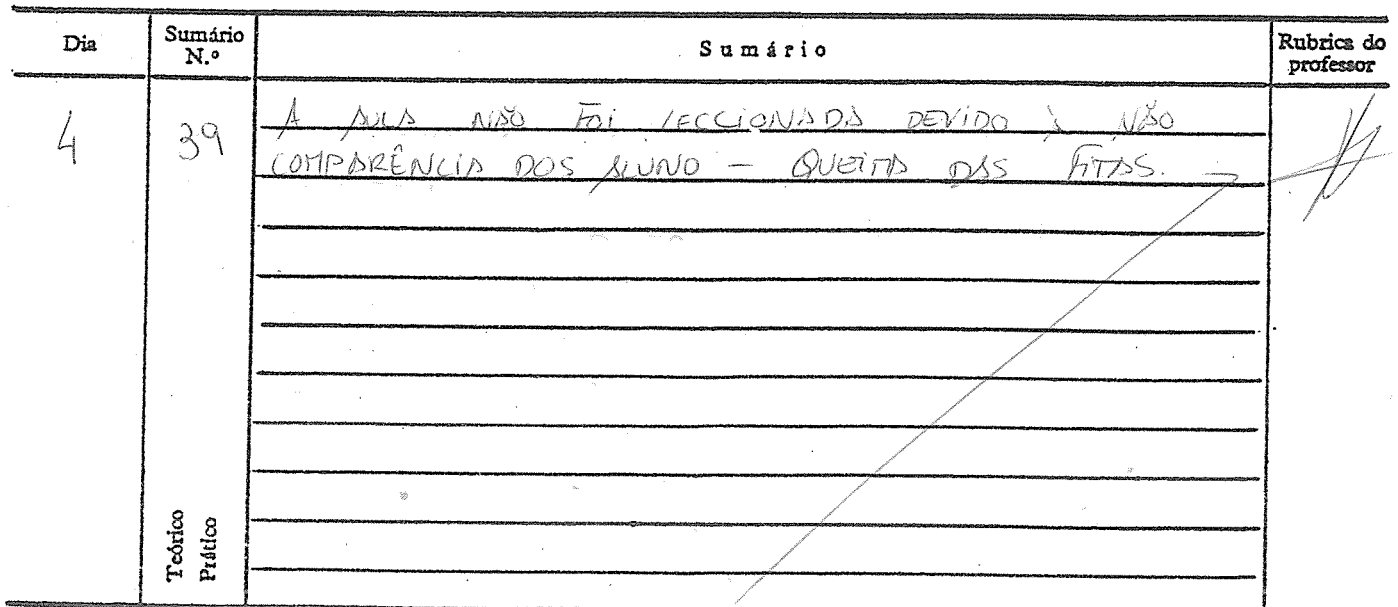 Dia Sumário N.º Sumário Rubrica do professor
4 39 A AULA NÃO FOI LECCIONADA DEVIDO À NÃO
COMPARÊNCIA DOS ALUNO — QUEIMA DAS FITAS. —
Teórico
Prático